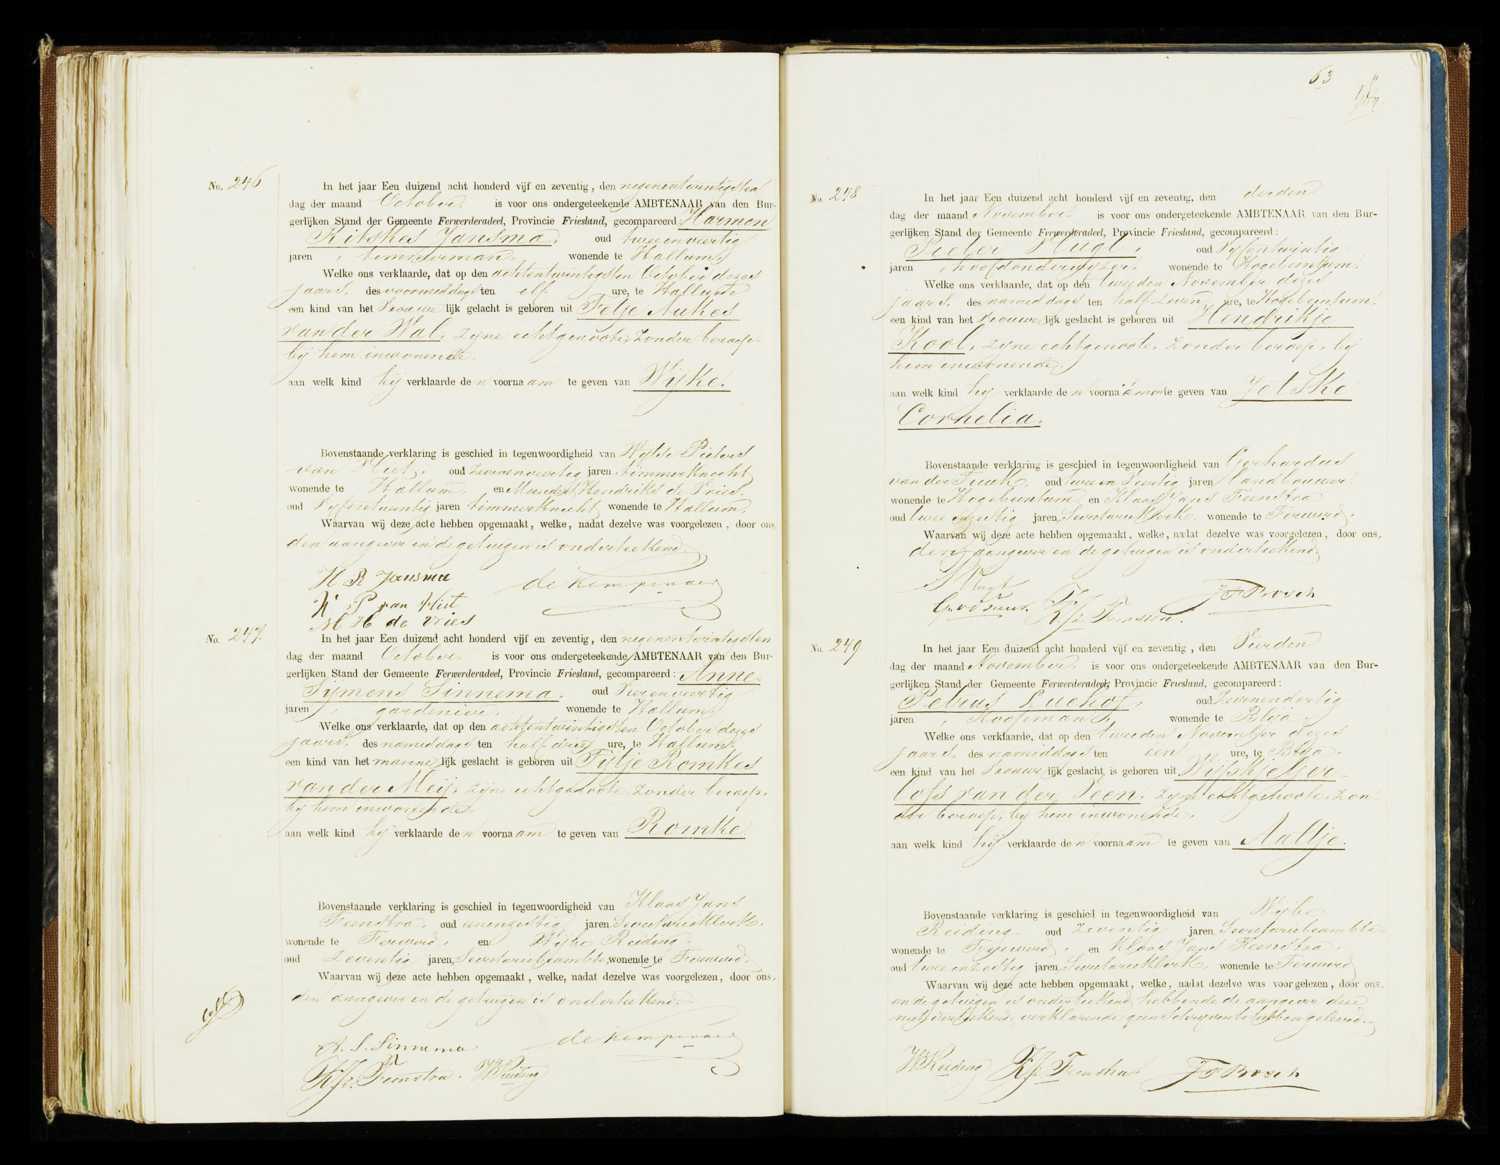 No. 246
In het jaar Een duizend acht honderd vijf en zeventig, den negenentwintigsten
dag der maand October is voor ons ondergeteekende AMBTENAAR van den Bur-
gerlijken Stand der Gemeente Ferwerderadeel, Provincie Friesland, gecompareerd Harmen
Ritskes Jansma, oud tweeenveertig
jaren, timmerman, wonende te Hallum,
Welke ons verklaarde, dat op den achtentwintigsten October dezes
jaars, des voormiddags ten elf ure, te Hallum
een kind van het Vrouwelijk geslacht is geboren uit Fetje Aukes
van der Wal, zijne echtgenoote, zonder beroep,
bij hem inwonende.
aan welk kind hij verklaarde den voornaam te geven van Wijke.
Bovenstaande verklaring is geschied in tegenwoordigheid van Wytse Pieters
van Vliet, oud jaren timmerknecht
wonende te Hallum, en Hendriks de Vries
oud jaren timmerknecht, wonende te Hallum,
Waarvan wij deze acte hebben opgemaakt, welke, nadat dezelve was voorgelezen, door ons,
den aangever en de getuigen is onderteekend.
H R Jansma de Kempenaer
W. P van Vliet
M H de Vries
No. 247.
In het jaar Een duizend acht honderd vijf en zeventig, den negenentwintigsten
dag der maand October is voor ons ondergeteekende AMBTENAAR van den Bur-
gerlijken Stand der Gemeente Ferwerderadeel, Provincie Friesland, gecompareerd: Anne
Sijmens Sinnema, oud vierenveertig
jaren, gardenier, wonende te Hallum,
Welke ons verklaarde, dat op den achtentwintigsten October dezes
jaars, des namiddags ten half drie ure, te Hallum
een kind van het mannelijk geslacht is geboren uit Tytje Romkes
van der Meij, zijne echtgenoote, zonder beroep,
bij hem inwonende.
aan welk kind hij verklaarde den voornaam te geven van Romke
Bovenstaande verklaring is geschied in tegenwoordigheid van Klaas Jans
Feenstra, oud eenenzestig jaren, Secretarieklerk,
wonende te Ferwerd, en Wijbo Reeding
oud zeventig jaren, Secretariebeambte, wonende te Ferwerd.
Waarvan wij deze acte hebben opgemaakt, welke, nadat dezelve was voorgelezen, door ons,
den aangever en de getuigen is onderteekend.
A. S. Sinnema de Kempenaer
K. Js. Feenstra. WReeding
63
No. 248
In het jaar Een duizend acht honderd vijf en zeventig, den derden
dag der maand November is voor ons ondergeteekende AMBTENAAR van den Bur-
gerlijken Stand der Gemeente Ferwerderadeel, Provincie Friesland, gecompareerd:
Pieter Vlugt, oud vijfentwintig
jaren, hoofdonderwijzer, wonende te Hogebeintum,
Welke ons verklaarde, dat op den tweeden November dezes
jaars, des namiddags ten half zeven ure, te Hogebeintum,
een kind van het vrouwelijk geslacht is geboren uit Hendrikje
Kool, zijne echtgenoote, zonder beroep, bij
hem inwonende,
aan welk kind hij verklaarde den voornamen te geven van Jetske
Cornelia.
Bovenstaande verklaring is geschied in tegenwoordigheid van Gerhardus
van der oud jaren landbouwer
wonende te Hogebeintum, en Klaas Jans Feenstra
oud tweeenzestig jaren, Secretarieklerk, wonende te Ferwerd,
Waarvan wij deze acte hebben opgemaakt, welke, nadat dezelve was voorgelezen, door ons,
den aangever en de getuigen is onderteekend.
P Vlugt
K. Js. Feenstra. J F Bosch
No. 249
In het jaar Een duizend acht honderd vijf en zeventig, den vierden
dag der maand November is voor ons ondergeteekende AMBTENAAR van den Bur-
gerlijken Stand der Gemeente Ferwerderadeel, Provincie Friesland, gecompareerd:
Petrus oud zevenendertig
jaren, koopman, wonende te Blija
Welke ons verklaarde, dat op den tweeden November dezes
jaars, des namiddags ten een ure, te Blija
een kind van het vrouwelijk geslacht is geboren uit Wijtskje Tjer-
van der Veen, zijne echtgenoote, zon-
der beroep, bij hem inwonende,
aan welk kind hij verklaarde den voornaam te geven van Aaltje.
Bovenstaande verklaring is geschied in tegenwoordigheid van Wijbo
Reeding oud zeventig jaren Secretariebeambte
wonende te Ferwerd, en Klaas Jans Feenstra,
oud tweeenzestig jaren, Secretarieklerk, wonende te Ferwerd,
Waarvan wij deze acte hebben opgemaakt, welke, nadat dezelve was voorgelezen, door ons,
en de getuigen is onderteekend, hebbende de aangever deze
niet onderteekend, verklarende geen schrijven te hebben geleerd.
WReeding K. Js. Feenstra J F Bosch